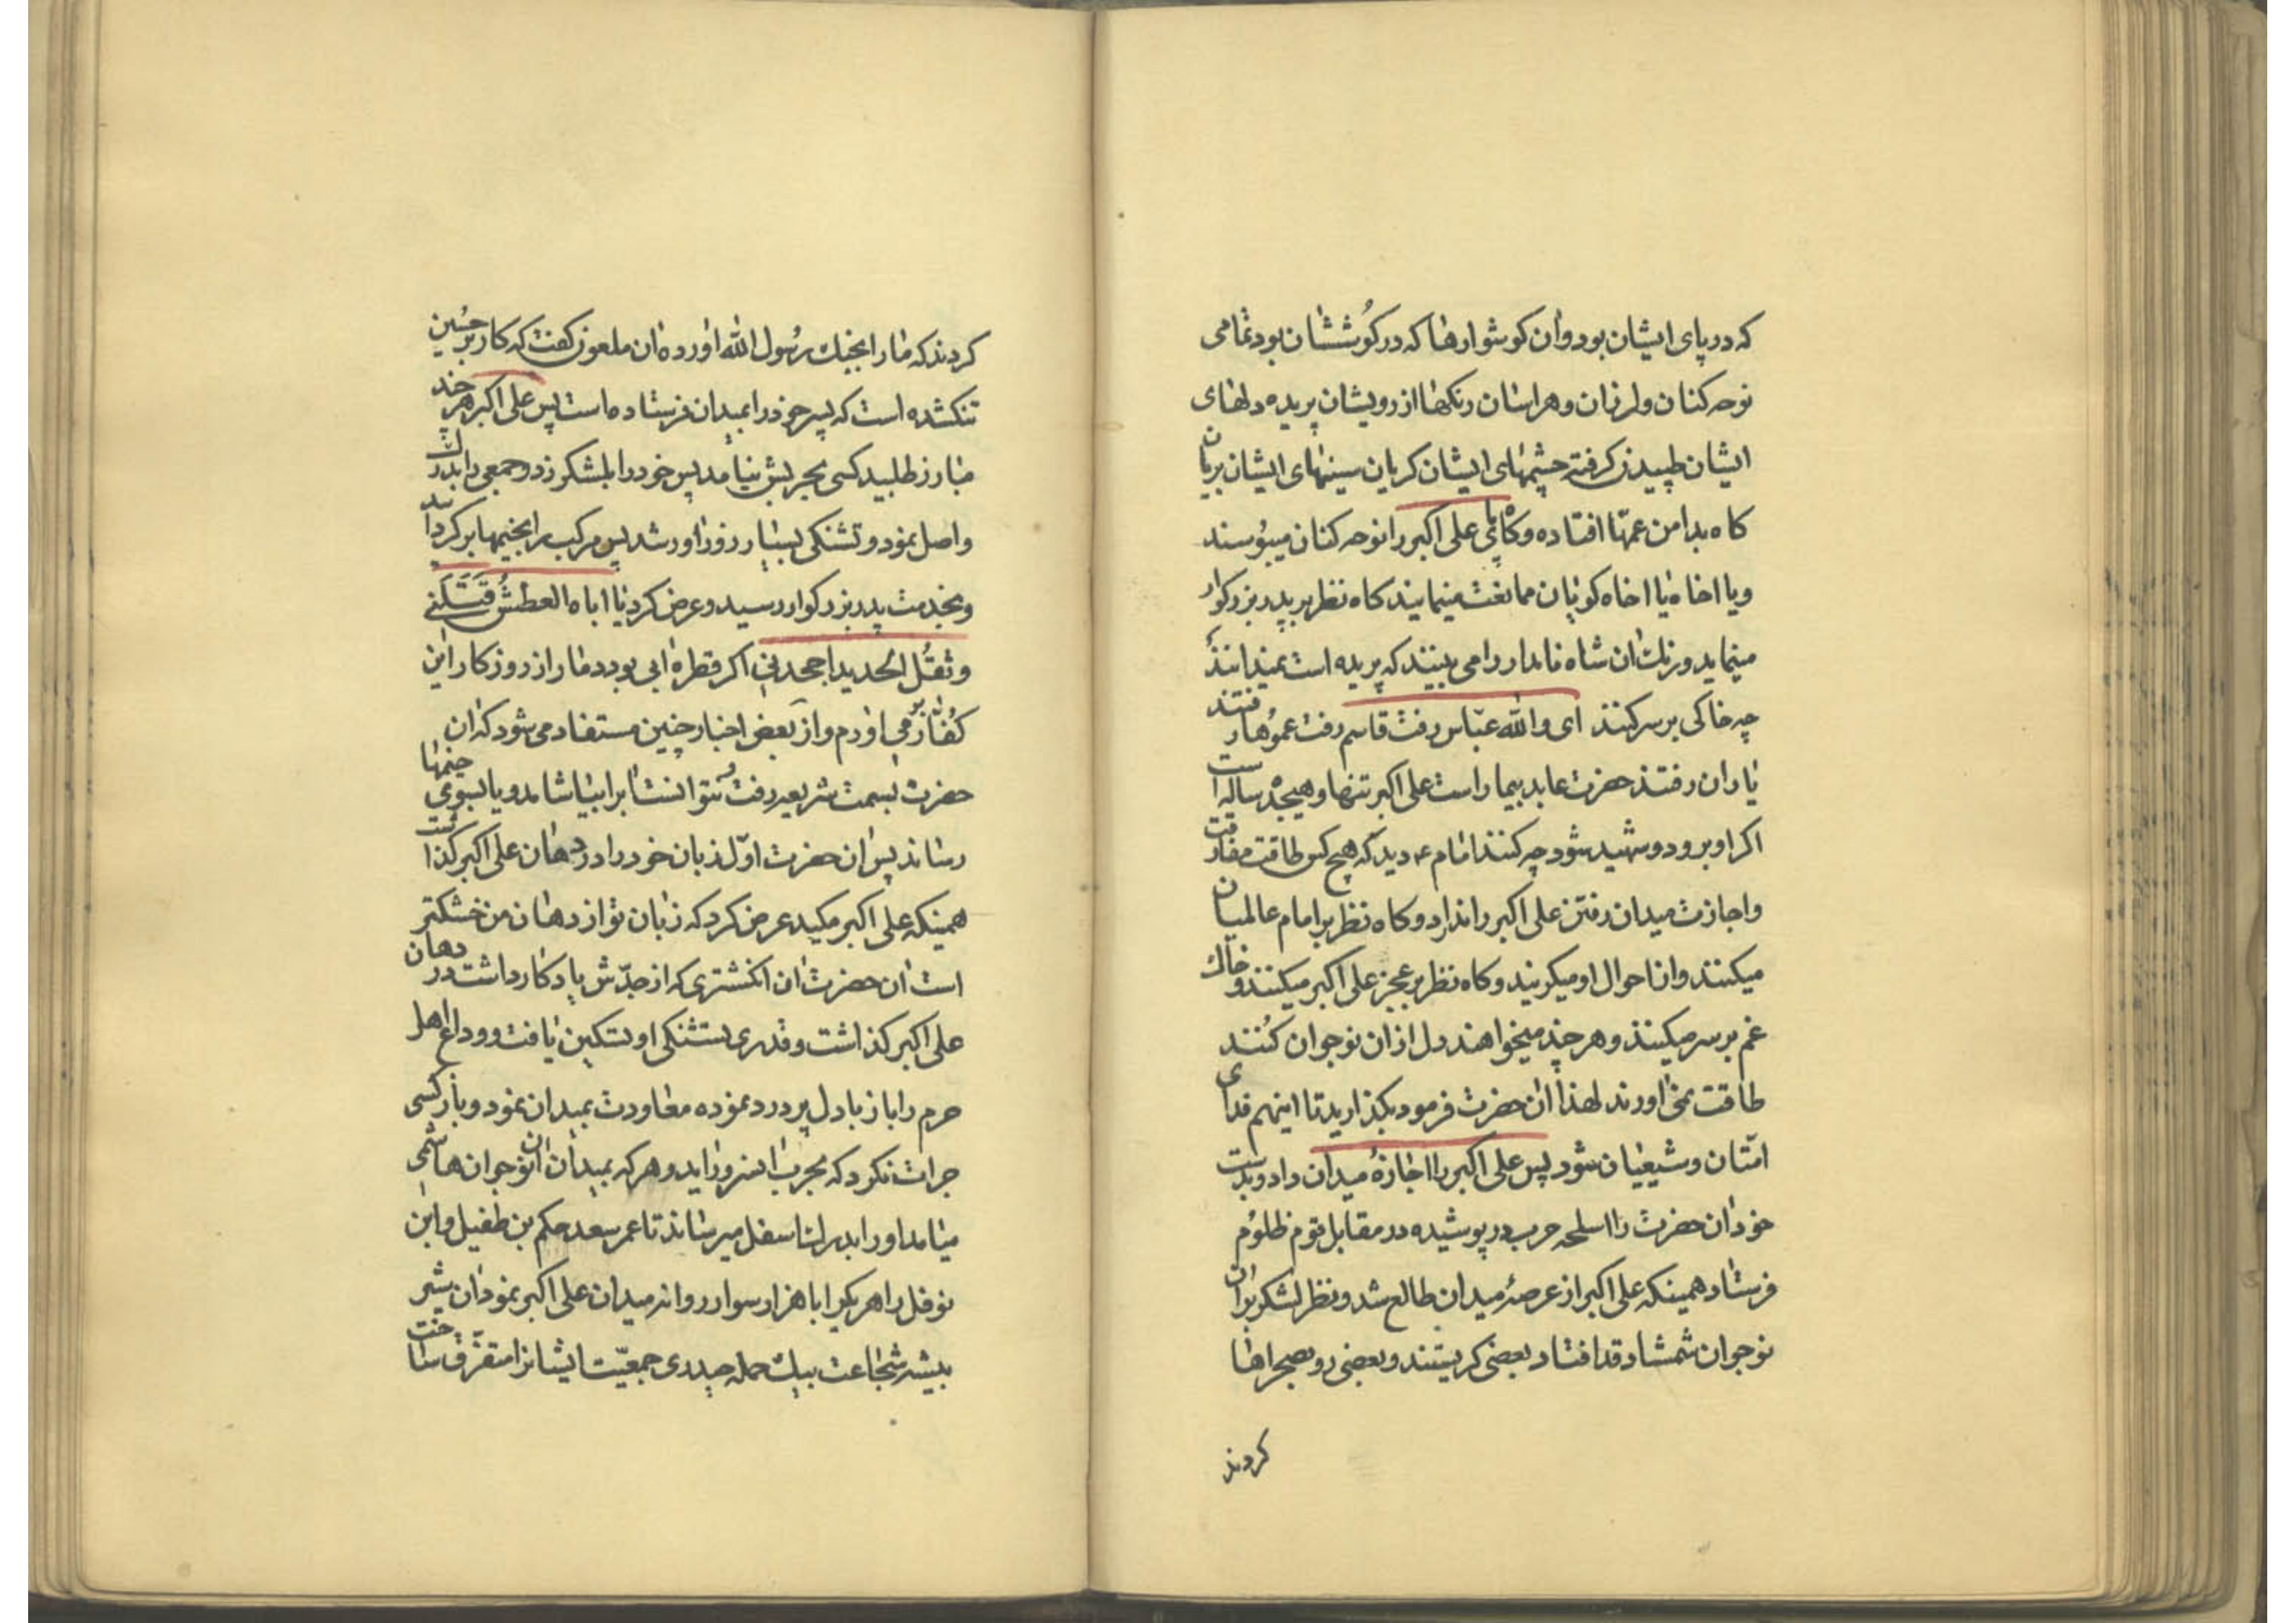 که در پای ایشان بود وان کوشوارها که در کوششان بود تمامی
نوحه کنان و لرزان و هراسان رنکها از رویشان پریده دلهای
ایشان طپیدن کرفته چشمهای ایشان کریان سینهای ایشان بریان
کاه بدامن عمها افتاده وکاه پای علی اکبر را نوحه کنان میبوسند
ویا اخاه یا اخاه کویان ممانعت مینمایند کاه نظر بر پدر بزرکوار
مینماید ورنک ان شاه نامدار را می بینند که پریده است نمیدانند
چه خاکی بر سر کنند ای والله عباس رفت قاسم رفت عموها رفتند
یاران رفتند حضرت عابد بیمار است علی اکبر تنها وهیجده ساله است
اکر او برود وشهید شود چه کنند امام ع دید که هیچ کس طاقت مفارقت
واجازت میدان رفتن علی اکبر را ندارد وکاه نظر بر امام عالمیان
میکنند وان احوال او میکریند وکاه نظر بر عجز علی اکبر میکنند وخاک
غم بر سر میکنند وهر چند میخواهند دل از ان نوجوان کنند
طاقت نمی اورند لهذا ان حضرت فرمود بکذارید تا اینهم فدای
امتان وشیعیان شود پس علی اکبر را اجازه میدان داد وبدست
خود ان حضرت را اسلحه حرب در پوشیده در مقابل قوم ظلوم
فرستاد همینکه علی اکبر از عرصهٔ میدان طالع شد ونظر لشکر بر ان
نوجوان شمشاد قد افتاد بعضی کریستند وبعضی رو بصحراها
کردند
کردند که ما را بجنک رسول الله اورده ان ملعون کفت که کار بر حسین
تنک شده است که پسر خود را بمیدان فرستاده است پس علی اکبر هر چند
مبارز طلبید کسی بحربش نیامد پس خود را بلشکر زد وجمعی را بدرک
واصل نمود وتشنکی بسیار زور اور شد پس مرکب را بخیمها بر کردانید
وبخدمت پدر بزرکوار رسید وعرض کرد یا اباه العطش قتلنی
وثقل الحدید اجهدنی اکر قطره ابی بود دمار از روزکار این
کفار بر می اورم واز بعض اخبار چنین مستفاد می شود که ان
حضرت بسمت شریعه رفت نتوانست ابرا بیاشامد ویا بسوی خیمها
رساند پس ان حضرت اول زبان خود را در دهان علی اکبر کذاشت
همینکه علی اکبر مکید عرض کرد که زبان تو از دهان من خشکتر
است ان حضرت ان انکشتری که از جدش یادکار داشت در دهان
علی اکبر کذاشت وقدری تشنکی او تسکین یافت ووداع اهل
حرم را باز با دل پر درد نموده معاودت بمیدان نمود وباز کسی
جرات نکرد که بحرب ان سرور اید وهر که بمیدان ان نوجوان هاشمی
میامد او را بدرک اسفل میرساند تا عمر سعد حکم بن طفیل وابن
نوفل را هر یکی را با هزار سوار روانه میدان علی اکبر نمود ان شیر
بیشه شجاعت بیک حمله حیدری جمعیت ایشانرا متفرق ساخت